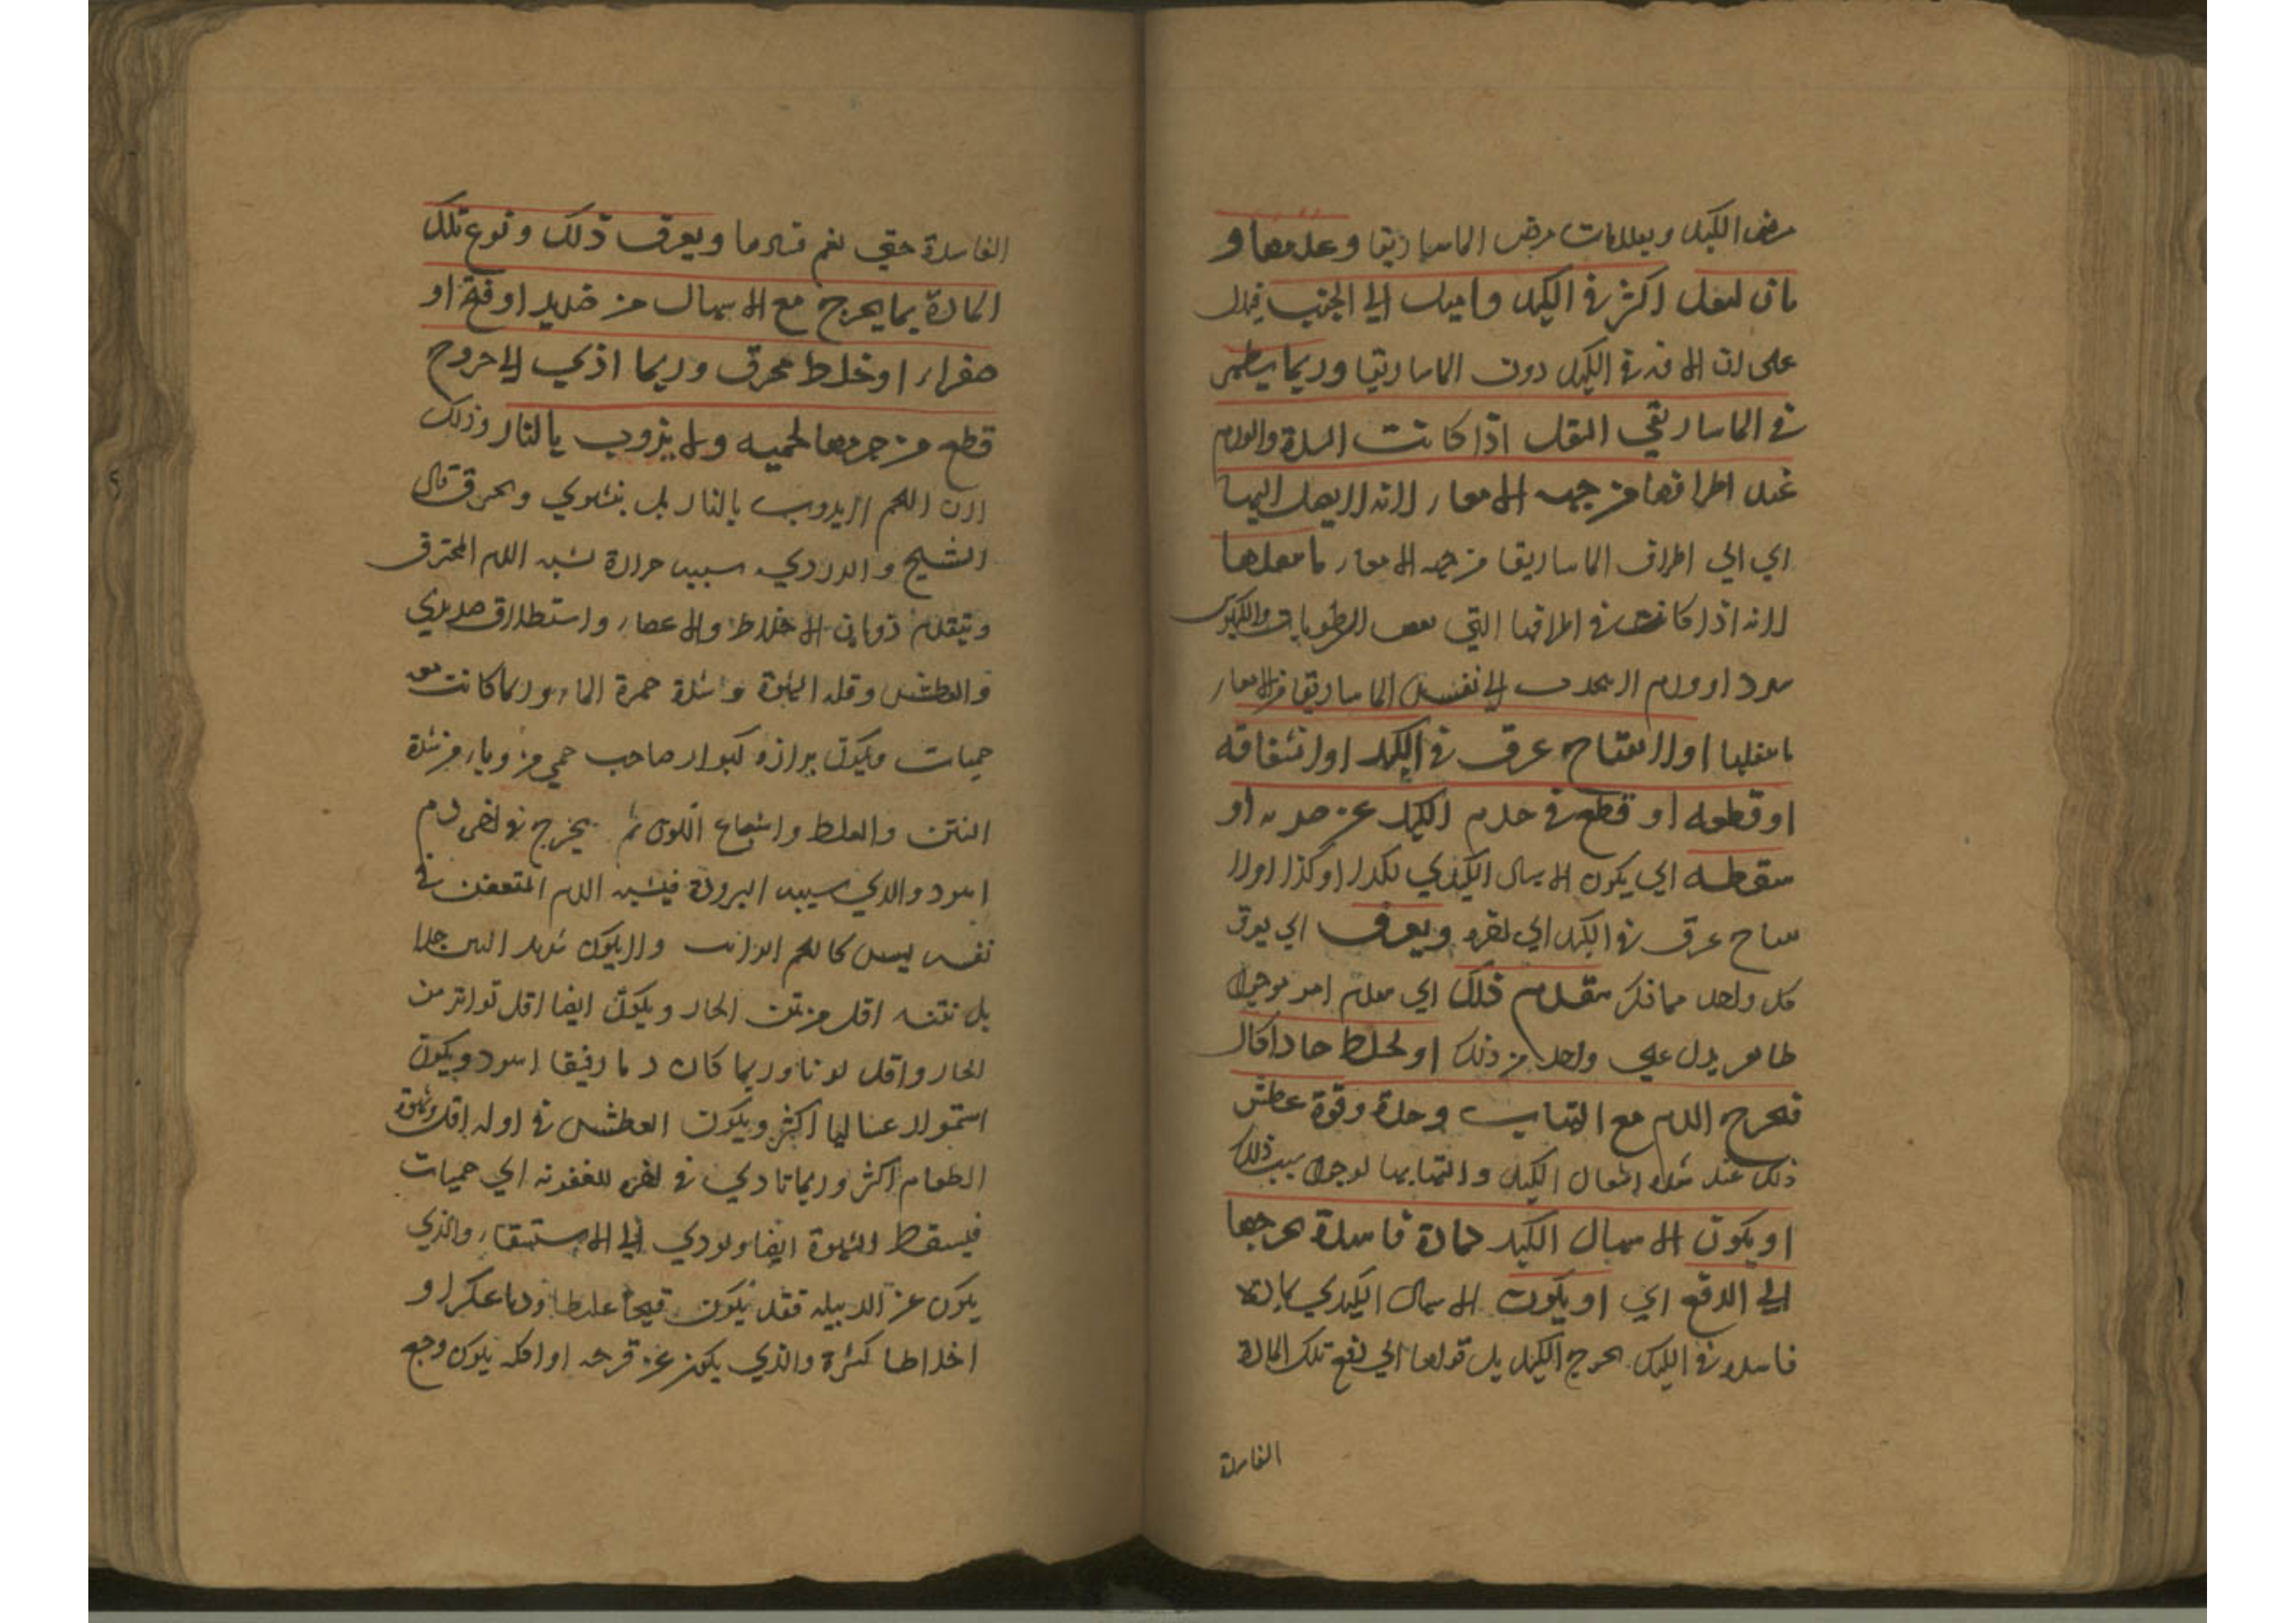 مرض الكبد وبعلامات مرض الماساريقا وعدمها و
بان الثقل اكثر في الكبد واميل الي الجنب فيدل
على ان الافة في الكبد دون الماساريقا وربما يظهر
في الماساريقي الثقل اذا كانت السدة والورم
عند اطرافها من جهة الامعاء لانه لا يصل اليها
اي الي اطراف الماساريقا من جهة الامعاء ما
لانه اذا كانت في اطرافها التي الرطوبات والكيلوس
سدد او ورم الي نفس الماساريقا من الامعاء
او لانفتاح عرق في الكبد او انشقاقه
او قطعه او قطع في جرم الكبد عن ضربه او
سقطه اي يكون الاسهال الكبدي لكذا او كذا او لا
عرق في الكبد اي ويعرف اي يعرف
كل واحد مما ذكر بتقدم ذلك اي
ظاهر يدل علي واحد من ذلك او لخلط حاد اكال
فيخرج الدم مع التهاب وحدة وقوة عطش
ذلك عند شدة اشتعال الكبد والتهابها لوجود سبب ذلك
او يكون الاسهال الكبد لمادة فاسدة يحوجها
الي الدفع اي او يكون الاسهال الكبدي
فاسدة في الكبد يحوج الكبد بل قواها الي دفع تلك المادة
الفاسدة
الفاسدة حتي ويعرف ذلك ونوع تلك
المادة بما يخرج مع الاسهال من صديد او قيح او
صفراء او خلط محرق وربما اذي الي خروج
قطع من جرمها لحميه ولا يذوب بالنار وذلك
لان اللحم لا يذوب بالنار بل ينشوي ويحرق قال
الشيخ والدردي سببه حرارة يشبه الدم المحترق
ويتقدم ذوبان الاخلاط والاعضاء واستطلاق صديدي
والعطش وقلة الشهوة وشدة حمرة الماء وربما كانت معه
حميات ويكون برازه كبراز صاحب حمي من وباء من شدة
النتن والغلظ واشباع اللون ثم يخرج في اخره دم
اسود والذي سببه البرودة فيشبه الدم المتعفن في
نفسه ليس كاللحم الذائب ولا يكون شديد النتن جدا
بل نتنه اقل من نتن الحار ويكون ايضا اقل تواتر من
الحار واقل لونا وربما كان دما رقيقا اسود ويكون
اكثر ويكون العطش في اوله اقل وشهوة
الطعام اكثر وربما تادي في اخره للعفونه الي حميات
فيسقط الشهوة ايضا ويودي الي الاستسقاء والذي
يكون عن الدبيله فقد يكون قيحا غليظا ودما عكرا و
اخلاطا كثيرة والذي يكون عن قرحه او اكله يكون وجع